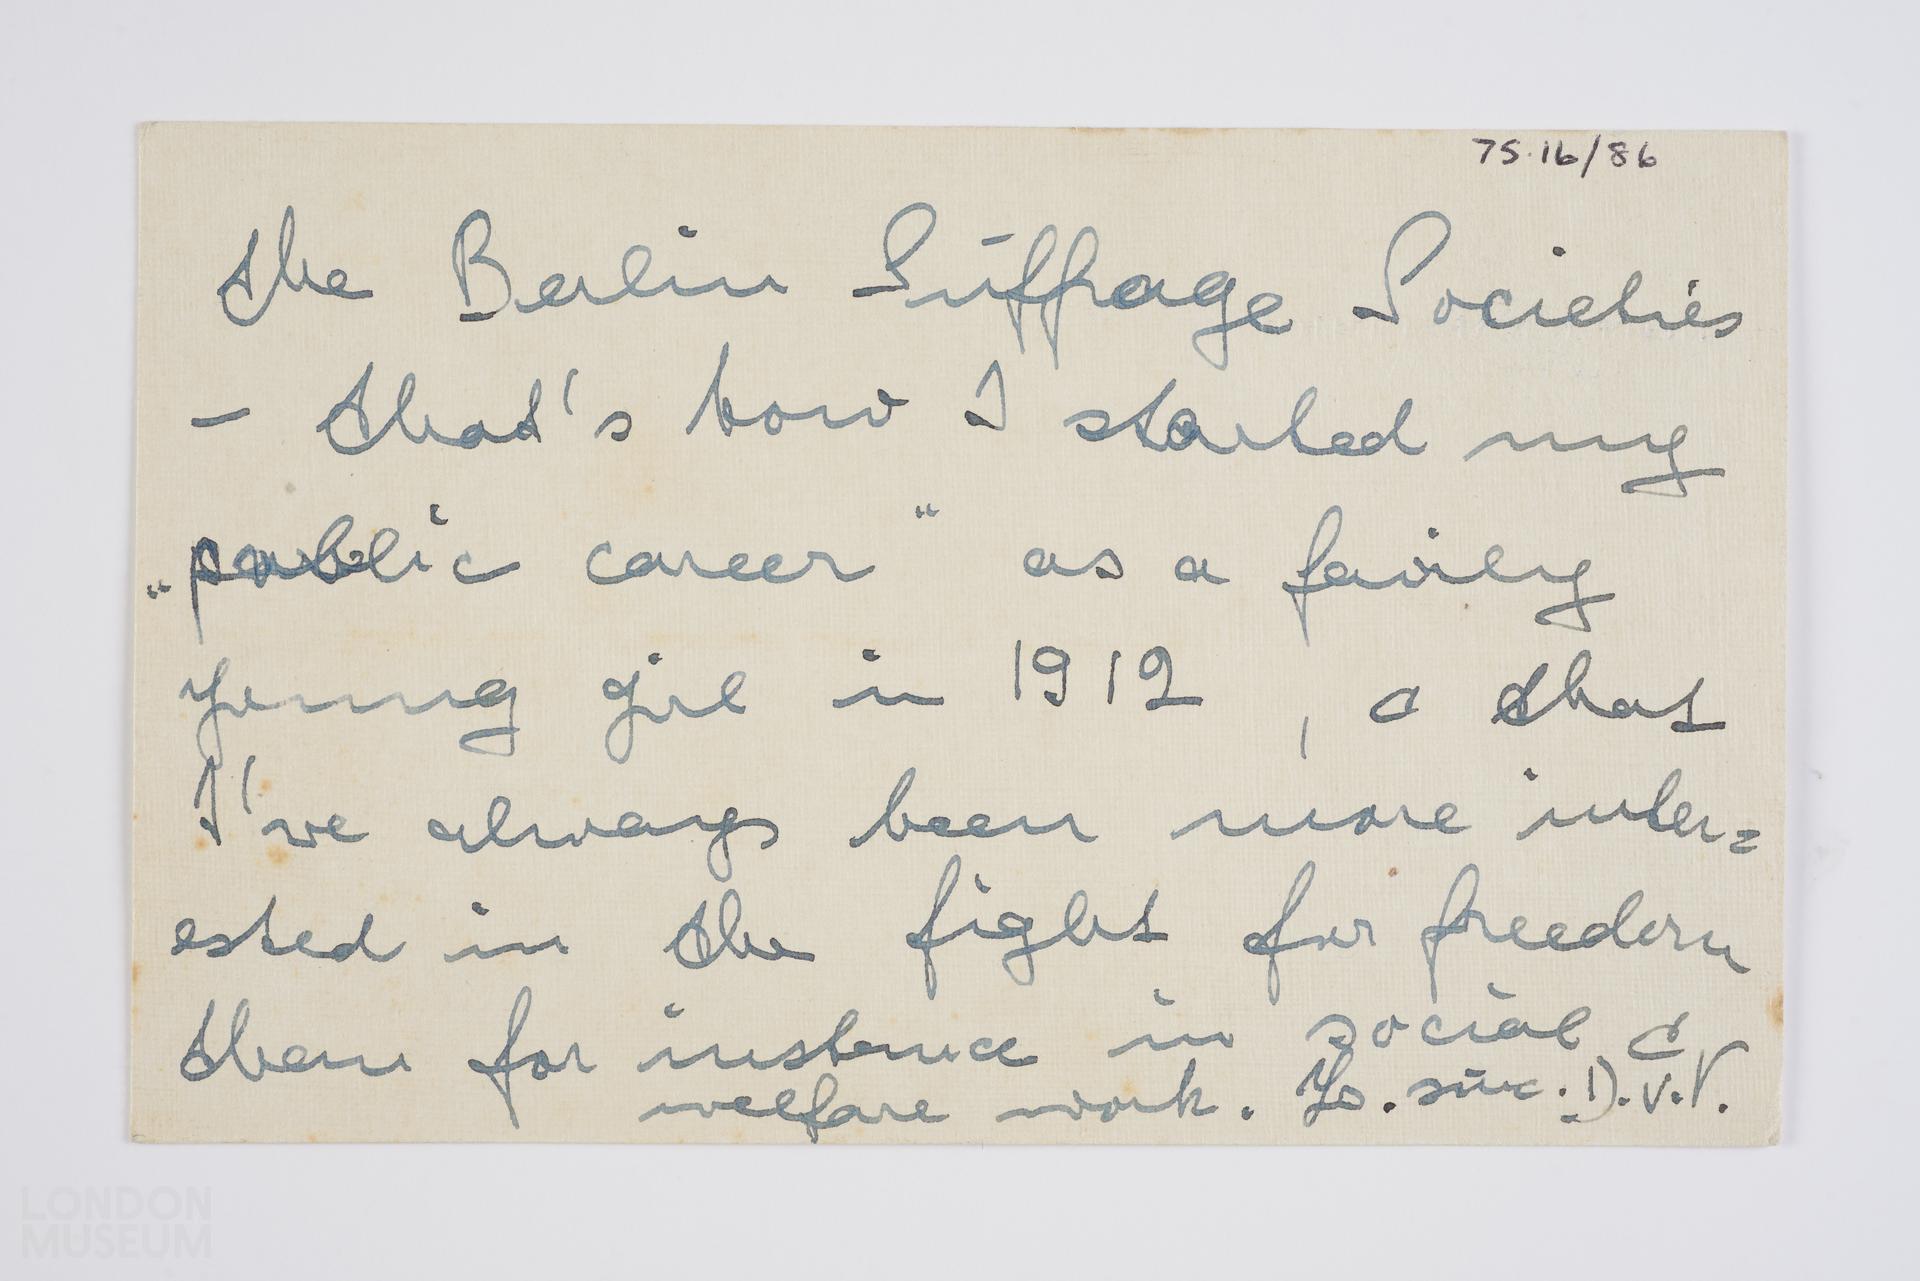 75.16/86
the Berlin Suffrage Societies
– that's how I started my
„public career“ as a fairly
young girl in 1912, & that
I've always been more inter=
ested in the fight for freedom
than for instance in social &
welfare work. Yo. sinc. D.V.V.
LONDON
MUSEUM